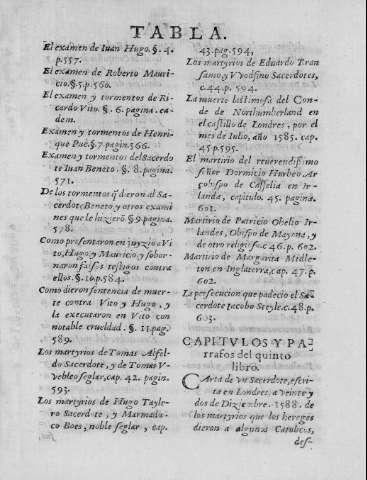 TABLA.
El examen de Iuan Hugo. §. 4.
p.557.
El examen de Roberto Mauri-
cio. §. 5. p. 560.
El examen y tormentos de Ri-
cardo Vito. §. 6. pagina. ea-
dem.
Examen y tormentos de Henri-
que Pue. §. 7. pagin. 566.
Examen y tormentos del Sacerdo
te Iuan Beneto. §. 8. pagina.
571.
De los tormentos q̃ dieron al Sa-
cerdote Beneto, y otros exami
nes que le hizierõ §. 9. pagina.
578.
Como presentaron en juyzio a Vi
to, Hugo, y Mauricio, y sobor-
naron falsos testigos contra
ellos. §. 10. p. 584.
Como dieron sentencia de muer-
te contra Vito y Hugo, y
la executaron en Vito con
notable crueldad. §. 11. pag.
589.
Los martyrios de Tomas Alfil-
do Sacerdote, y de Tomas V-
vebleo seglar, cap. 42. pagin.
593.
Los martyrios de Hugo Tayle-
ro Sacerdote, y Marmadu-
co Boes, noble seglar, cap.
43. pag. 594.
Los martyrios de Eduardo Tran
samo, y Vvodfino Sacerdotes,
c.44. p. 594.
La muerte lastimosa del Con-
de de Northumberland en
el castillo de Londres, por el
mes de Iulio, año 1585. cap.
45. p. 595.
El martirio del reuerendissimo
señor Dormicio Hurleo Ar
çobispo de Casselia en Ir-
landa, capitulo. 45. pagina.
601.
Martirio de Patricio Ohelio Ir-
landes, Obispo de Mayona, y
de otro religioso. c. 46. p. 602.
Martirio de Margarita Midle-
ton en Inglaterra, cap. 47. p.
602.
La persecucion que padecio el Sa-
cerdote Iacobo Steyle. c. 48. p.
603.
CAPITVLOS Y PA-
rrafos del quinto
libro.
CArta de vn Sacerdote, escri-
ta en Londres, a veinte y
dos de Diziembre. 1588. de
los martyrios que los hereges
dieron a algunos Catolicos,
des-